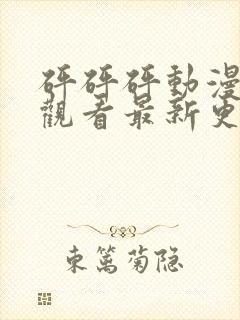 砰砰砰動漫
觀看最新更
東篱菊隐